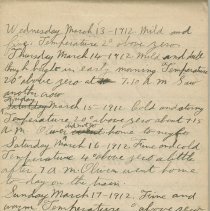 Wednesday March 13-1912. Mild and
Temperature 2° above zero.
Thursday March 14-1912. Mild and dull
in early morning Temperature
26° above zero at 7.10 A.M. Saw
Friday
March 15-1912. Cold and stormy
Temperature 20° above zero about 7.15
A.M. went home to
Saturday March 16-1912. Fine and cold
Temperature 4° above zero a little
after 7 A.M. Oliver went home
to day on the train.
Sunday March 17-1912. Fine and
warm Temperature ° above zero